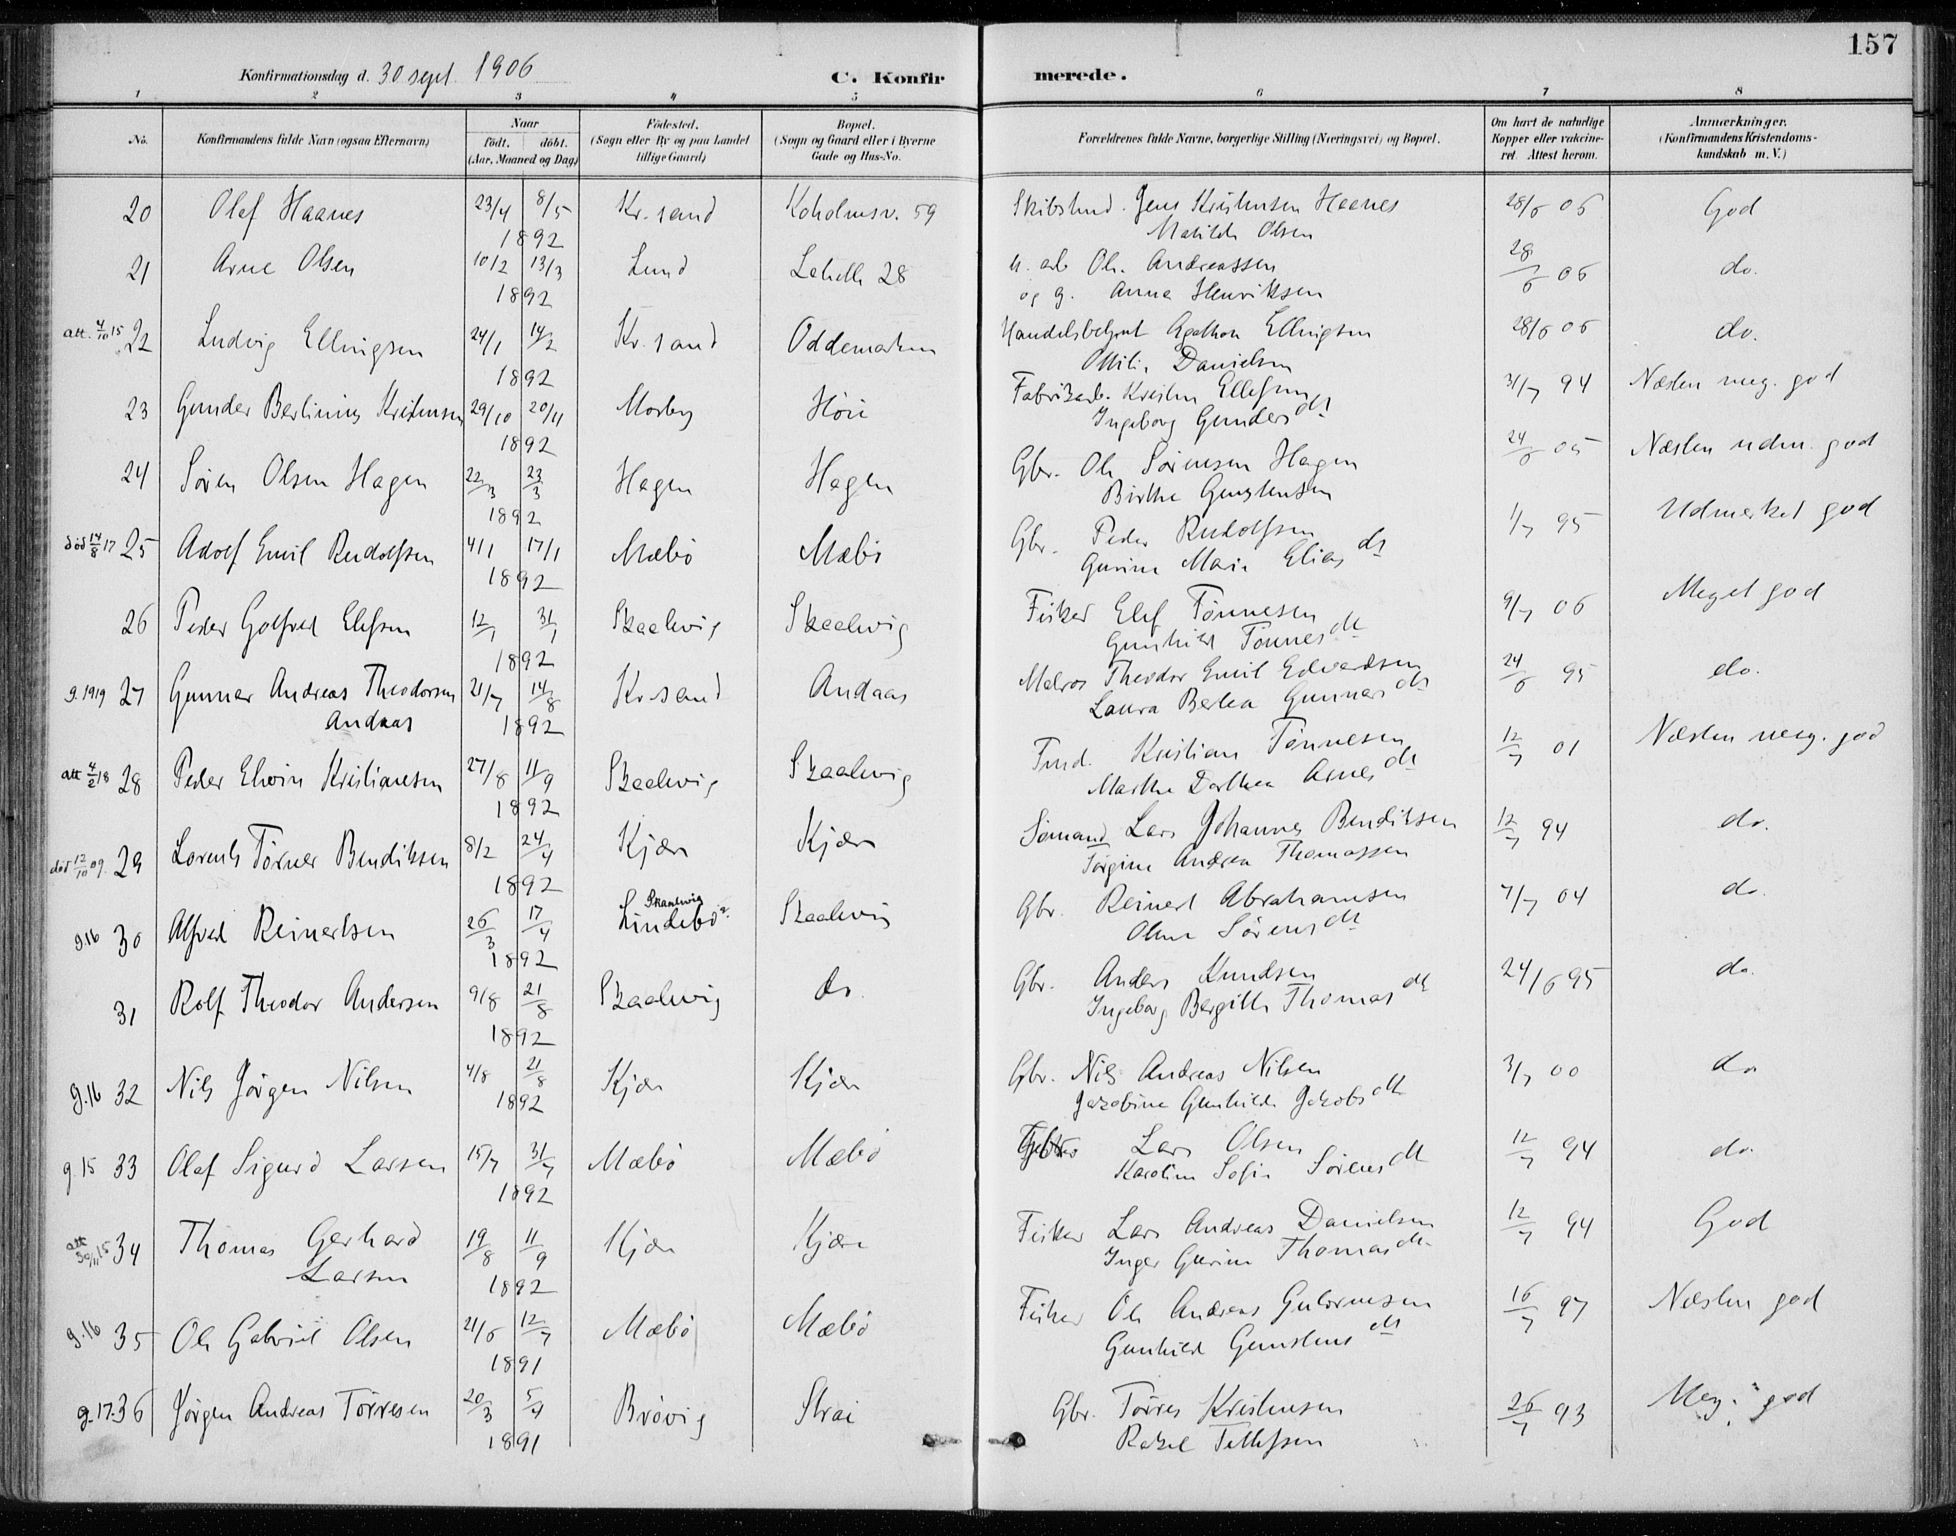 157
Konfirmationsdag d. 30 sept. 1906 C. Konfirmerede.
1 2 3 4 5 6 7 8
No. Konfirmandens fulde Navn (ogsaa Efternavn) Naar født. døbt. (Aar, Maaned og Dag) Fødested. (Sogn eller By og paa Landet tillige Gaard) Bopæl. (Sogn og Gaard eller i Byerne Gade og Hus-No. Forældrenes fulde Navne, borgerlige Stilling (Næringsvei) og Bopæl. Om havt de naturlige Kopper eller vakcineret Attest herom. Anmærkninger. (Konfirmandens Kristendomskundskab m. V.)
20 Olaf Haanes 23/4 8/5 1892 Kr.sand Koholmsv. 59 Jens Kristensen Haanes 28/6 06 God
Matilde Olsen
21 Arne Olsen 10/2 13/3 1892 Lund 28 Ole Andreassen 28/6 06 do.
og g. Anna Henriksen
att. 4/10 15 22 Ludvig Ellingsen 24/1 14/2 1892 Kr.sand Oddemarken Agathon Ellingsen 28/6 06 do.
Danielsen
23 Gunder Berlinius Kristensen 29/10 20/11 1892 Mosby Høie Fabrikarb. Kristen Ellefsen 31/7 94 Næsten meg. god
Ingeborg Gundersdt
24 Søren Olsen Hagen 22/3 23/3 1892 Hagen Hagen Gbr. Ole Sørensen Hagen 24/6 05 Næsten udm. god
Birthe Gunstensen
død 14/8 17 25 Adolf Emil Rudolfsen 4/1 17/1 1892 Mæbø Mæbø Gbr. Peder Rudolfsen 1/7 95 Udmerket god
Gurine Marie Eliasdt
26 Peder Gotfred Elefsen 12/1 31/1 1892 Skaalevig Skaalevig Fisker Elef Tønnesen 9/7 06 Meget god
Gunhild Tønnesdt
g. 1919 27 Gunnar Andreas Theodorsen 21/7 14/8 1892 Kr.sand Andaas Matros Theodor Emil Edvardsen 24/6 95 do.
Andaas Laura Bertea Gunnarsdt
att 4/2 18 28 Peder Elvin Kristiansen 27/8 11/9 1892 Skaalevig Skaalevig Kristian Tønnesen 12/7 01 Næsten meg. god
Marthe Dorthea Arnesdt
død 12/10 09. 29 Lorents Tørner Bendiksen 8/2 24/4 1892 Kjær Kjær Sømand Lars Johannes Bendiksen 12/7 94 do.
Torgine Andrea Thomassen
g.16 30 Alfred Reinertsen 26/3 17/4 1892 Skaalevig Lindebø Skaalevig Gbr. Reinert Abrahamsen 7/7 04 do.
Oline Sørensdt
31 Rolf Theodor Andersen 9/8 21/8 1892 Skaalevig do. Gbr. Anders Knudsen 24/6 95 do.
Ingeborg Bergitte Thomasdt
g.16 32 Nils Jørgen Nilsen 4/8 21/8 1892 Kjær Kjær Gbr. Nils Andreas Nilsen 3/7 00 do.
Jakobine Gunhilde Jakobsdt
g.15 33 Olaf Sigurd Larsen 15/7 31/7 1892 Mæbø Mæbø Lars Olsen 12/7 94 do.
Karoline Sofie Sørensdt
att 30/11 15 34 Thomas Gerhard 19/8 11/9 1892 Kjær Kjær Fisker Lars Andreas Danielsen 12/7 94 God
Larsen Inger Gurine Thomasdt
g.16 35 Ole Gabriel Olsen 21/6 12/7 1891 Mæbø Mæbø Fisker Ole Andreas Gulovnsen 16/7 97 Næsten god
Gunhild Gunstensdt
g.17. 36 Jørgen Andreas Tørresen 20/3 5/4 1891 Brøvig Strai Gbr. Tørres Kristensen 26/7 93 Meg. god
Rakel Tellefsen